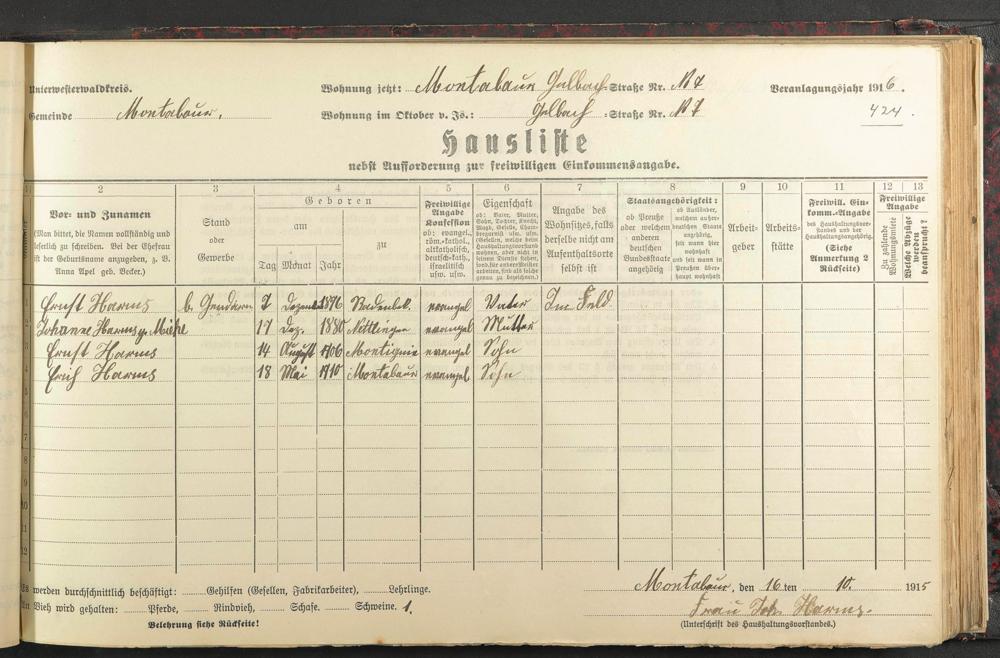 Unterwesterwaldkreis.
Wohnung jetzt: Montabaur Gelbach Straße Nr.
Veranlagungsjahr 1916.
Gemeinde Montabaur.
Wohnung im Oktober v. Js.: Gelbach Straße Nr.
424.
Hausliste
nebst Aufforderung zur freiwilligen Einkommensangabe.
2 3 4 5 6 7 8 9 10 11 12 13
Vor- und Zunamen
(Man bittet, die Namen vollständig und
leserlich zu schreiben. Bei der Ehefrau
ist der Geburtsname anzugeben, z. B.
Anna Apel geb. Becker.)
Stand
oder
Gewerbe
Geboren
am
zu
Tag Monat Jahr
Freiwillige
Angabe
Konfession
ob: evangel.,
röm.-kathol.,
altkatholisch,
deutsch-kath.,
israelitisch
usw. usw.
Eigenschaft
ob: Vater, Mutter,
Sohn, Tochter, Knecht,
Magd, Geselle,
Angabe des
Wohnsitzes, falls
derselbe nicht am
Aufenthaltsorte
selbst ist
Staatsangehörigkeit:
ob Preuße
oder welchem
anderen
deutschen
Bundesstaate
angehörig
ob Ausländer,
welchem außer-
deutschen Staate
angehörig,
seit wann hier
wohnhaft
und seit wann in
Preußen über-
haupt wohnhaft
Arbeit-
geber
Arbeits-
stätte
Freiwill. Ein-
komm.-Angabe
des Haushaltungsvor-
standes und der
Haushaltungsangehörig.
(Siehe
Anmerkung 2
Rückseite)
Freiwillige
Angabe
Zu zahlende
Wohnungsmiete
Welche Abzüge
werden
beansprucht?
Ernst Harms b. Gendarm 7 1876 evangel Vater Im Feld
Johanne Harms g. 17 Dez. 1880 evangel Mutter
Ernst Harms 14 August 1906 evangel Sohn
Erich Harms 18 Mai 1910 Montabaur evangel Sohn
5
7
8
9
10
11
12
Es werden durchschnittlich beschäftigt: Gehilfen (Gesellen, Fabrikarbeiter), Lehrlinge.
An Vieh wird gehalten: Pferde, Rindvieh, Schafe. Schweine. 1.
Belehrung siehe Rückseite!
Montabaur, den 16 ten 10. 1915
Frau Joh. Harms.
(Unterschrift des Haushaltungsvorstandes.)